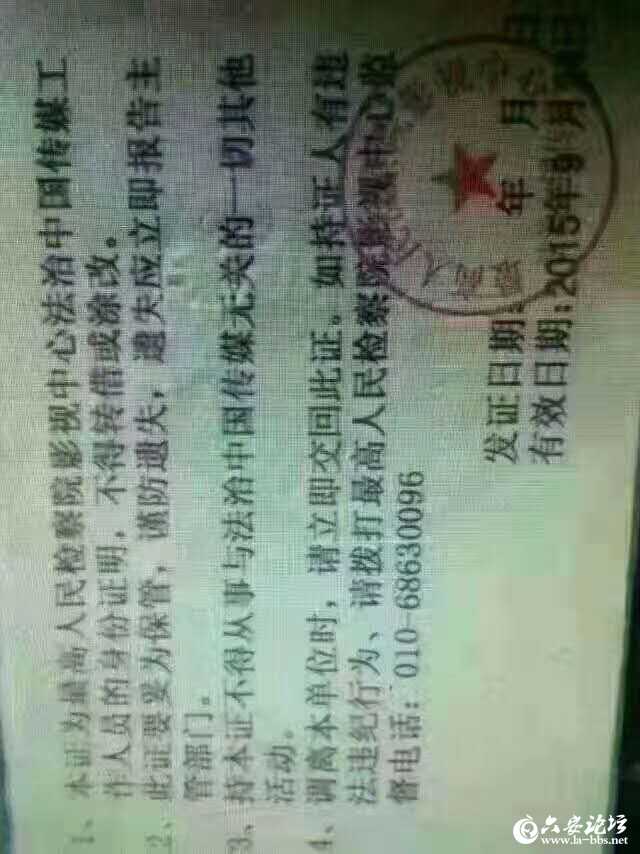 1、本证为最高人民检察院影视中心法治中国传媒工
作人员的身份证明，不得转借或涂改。
2、此证要妥为保管，谨防遗失，遗失应立即报告主
管部门。
3、持本证不得从事与法治中国传媒无关的一切其他
活动。
4、调离本单位时，请立即交回此证。如持证人有违
法违纪行为、请拨打最高人民检察院影视中心监
督电话：010-68630096
发证日期: 年 月 日
有效日期:2015年9月 日
六安论坛
www.la-bbs.net